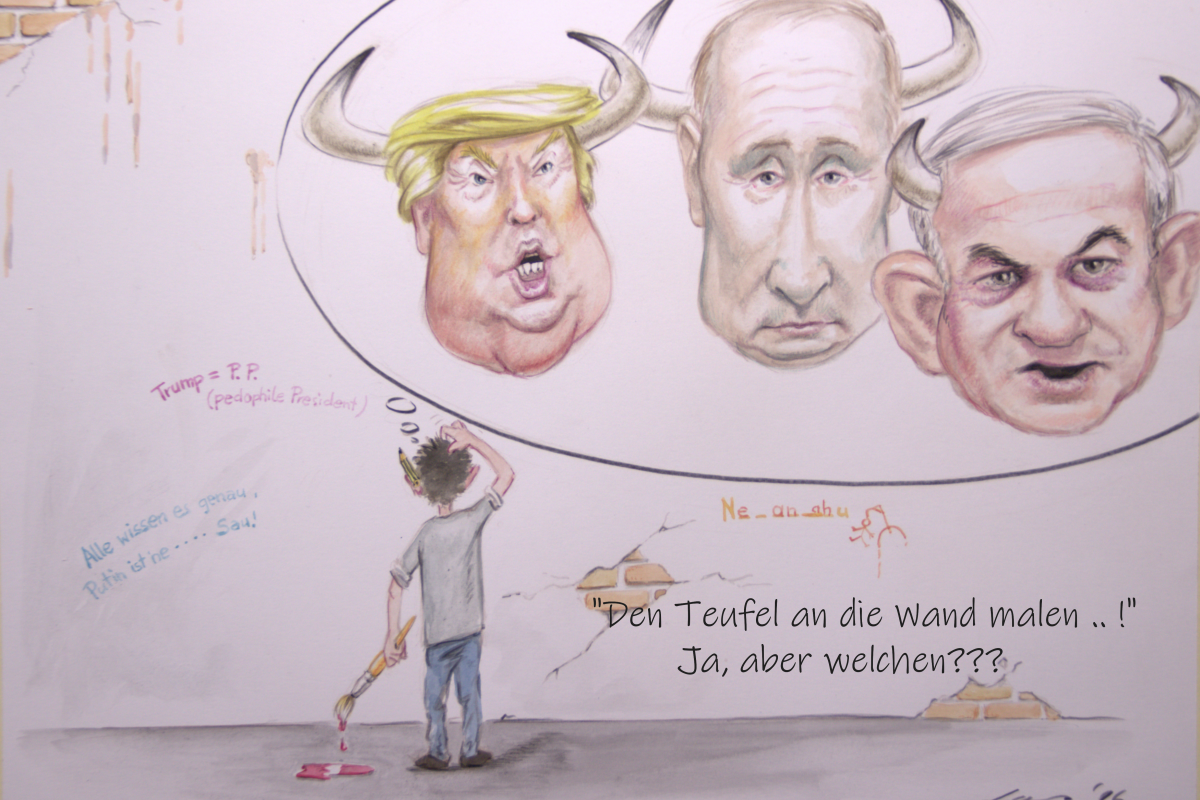 Trump = P. P.
(pedophile President)
Alle wissen es genau,
Putin ist ne ..... Sau!
Ne_an_ahu
"Den Teufel an die Wand malen .. !"
Ja, aber welchen???